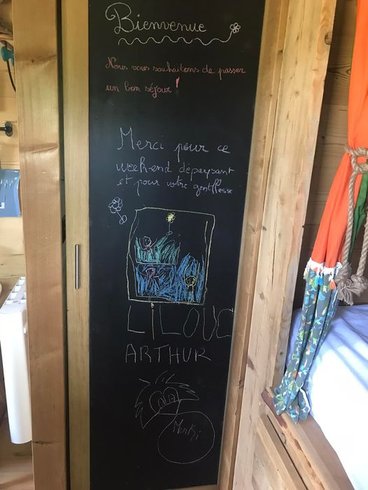 Bienvenue
Nous vous souhaitons de passer
un bon séjour !
Merci pour ce
week-end dépaysant
et pour votre gentillesse
LILOUC
ARTHUR